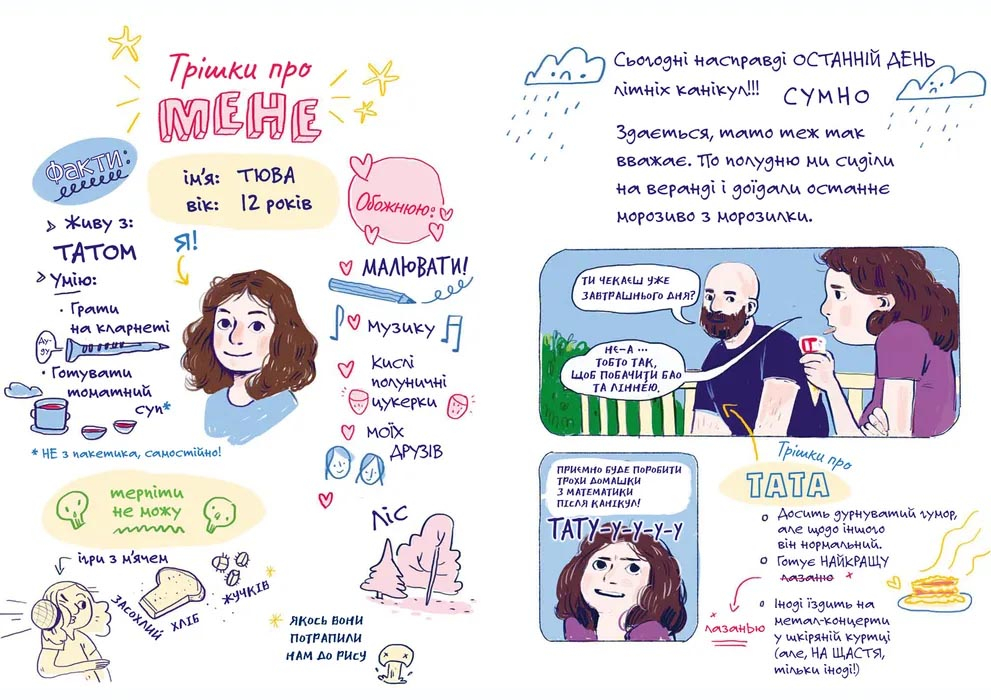 Трішки про
МЕНЕ
Факти:
Живу з:
ТАТОМ
Умію:
· Грати
на кларнеті
Ду-
ду
· Готувати
томатний
суп*
* НЕ з пакетика, самостійно!
ім'я: ТЮВА
вік: 12 років
Я!
Обожнюю:
МАЛЮВАТИ!
музику
Кислі
полуничні
цукерки
моїх
ДРУЗІВ
ліс
терпіти
не можу
ігри з м'ячем
ЗАСОХЛИЙ ХЛІБ
ЖУЧКІВ *
* ЯКОСЬ ВОНИ
ПОТРАПИЛИ
НАМ ДО РИСУ
Сьогодні насправді ОСТАННІЙ ДЕНЬ
літніх канікул!!!
СУМНО
Здається, тато теж так
вважає. По полудню ми сиділи
на веранді і доїдали останнє
морозиво з морозилки.
ТИ ЧЕКАЄШ УЖЕ
ЗАВТРАШНЬОГО ДНЯ?
НЕ-А ...
ТОБТО ТАК,
ЩОБ ПОБАЧИТИ БАО
ТА ЛІННЕЮ.
ПРИЄМНО БУДЕ ПОРОБИТИ
ТРОХИ ДОМАШКИ
З МАТЕМАТИКИ
ПІСЛЯ КАНІКУЛ!
ТАТУ-У-У-У-У
Трішки про
ТАТА
Досить дурнуватий гумор,
але щодо іншого
він нормальний.
Готує НАЙКРАЩУ
лазаню *
* лазанью
Іноді їздить на
метал-концерти
у шкіряній куртці
(але, НА ЩАСТЯ,
тільки іноді!)